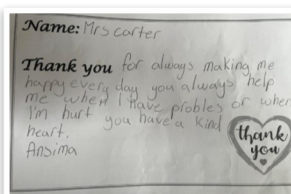 Name: Mrs carter
Thank you for always making me
happy every day you always help
me when I have probles or wher
I'm hurt you have a kind
heart.
Ansima
thank
you